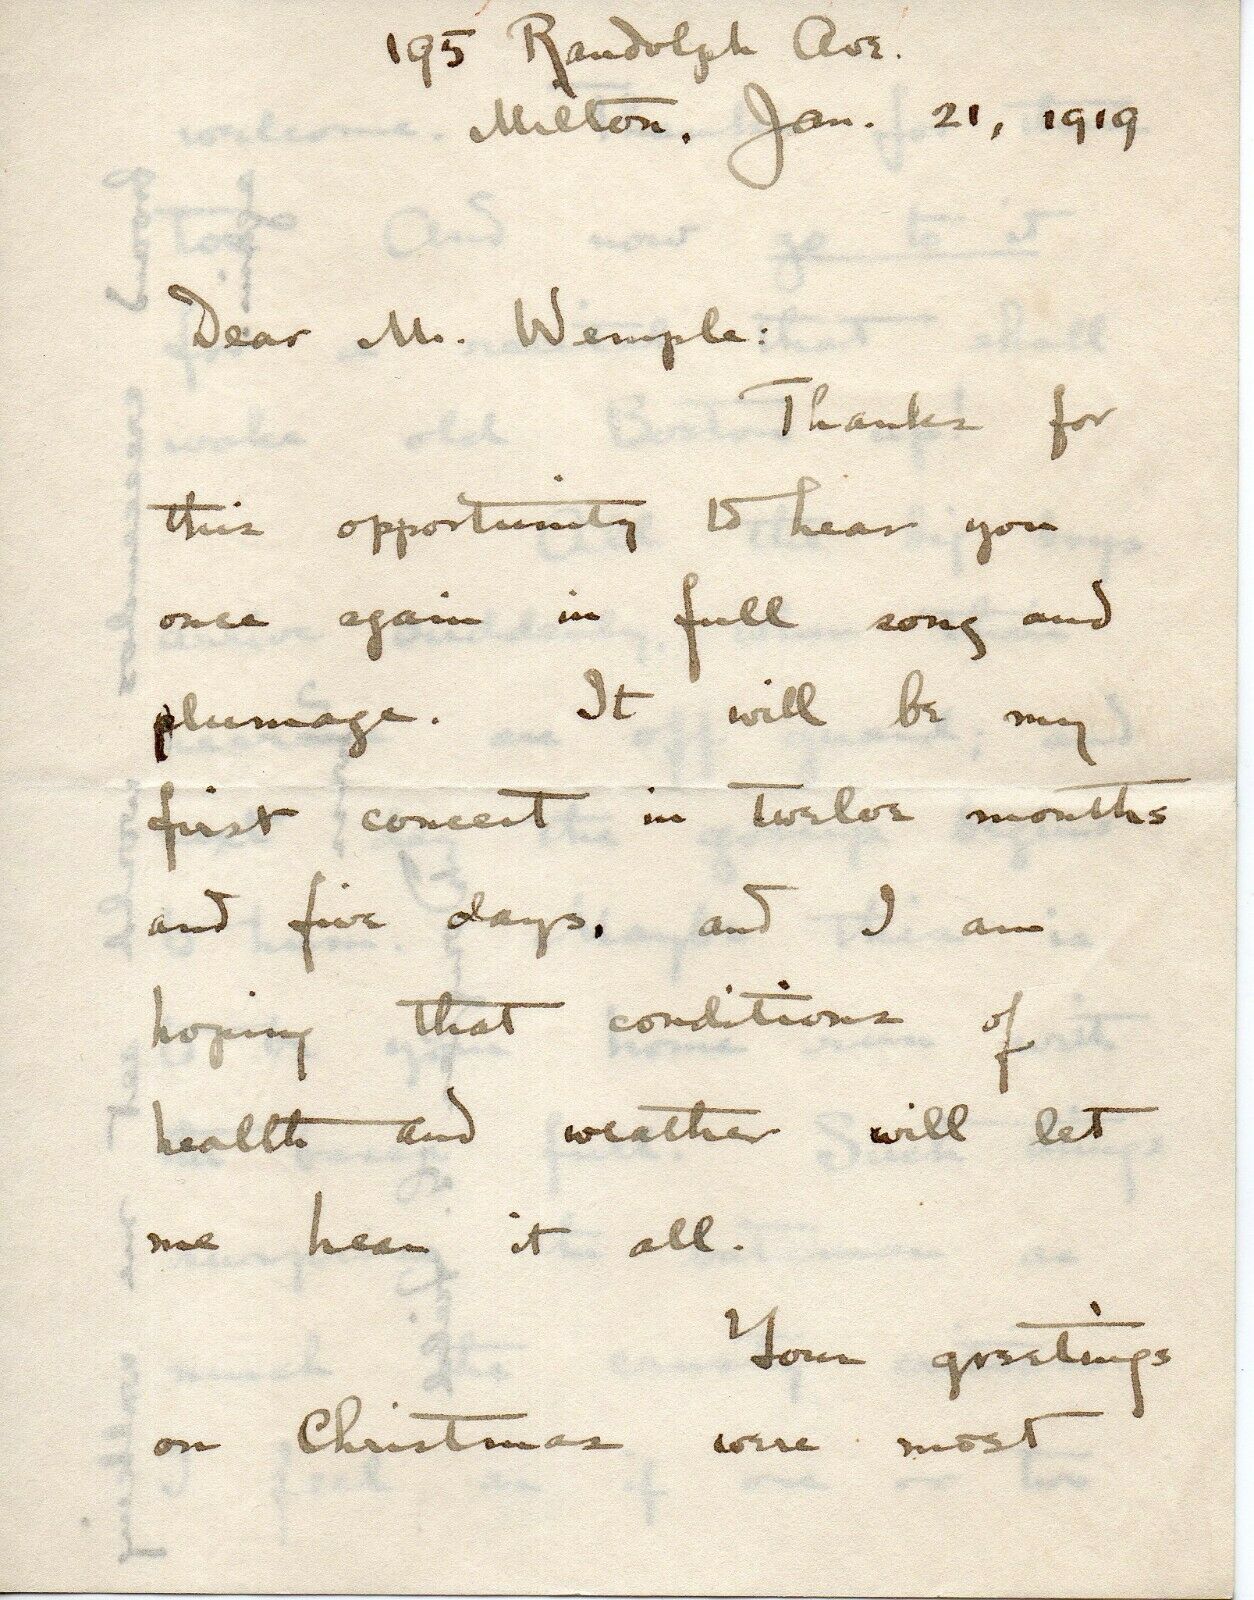 195 Randolph Ave.
Milton, Jan. 21, 1919
Dear Mr. Wemple:
Thanks for
this opportunity to hear you
once again in full song and
plumage. It will be my
first concert in twelve months
and five days, and I am
hoping that conditions of
health and weather will let
me hear it all.
Your greetings
on Christmas were most